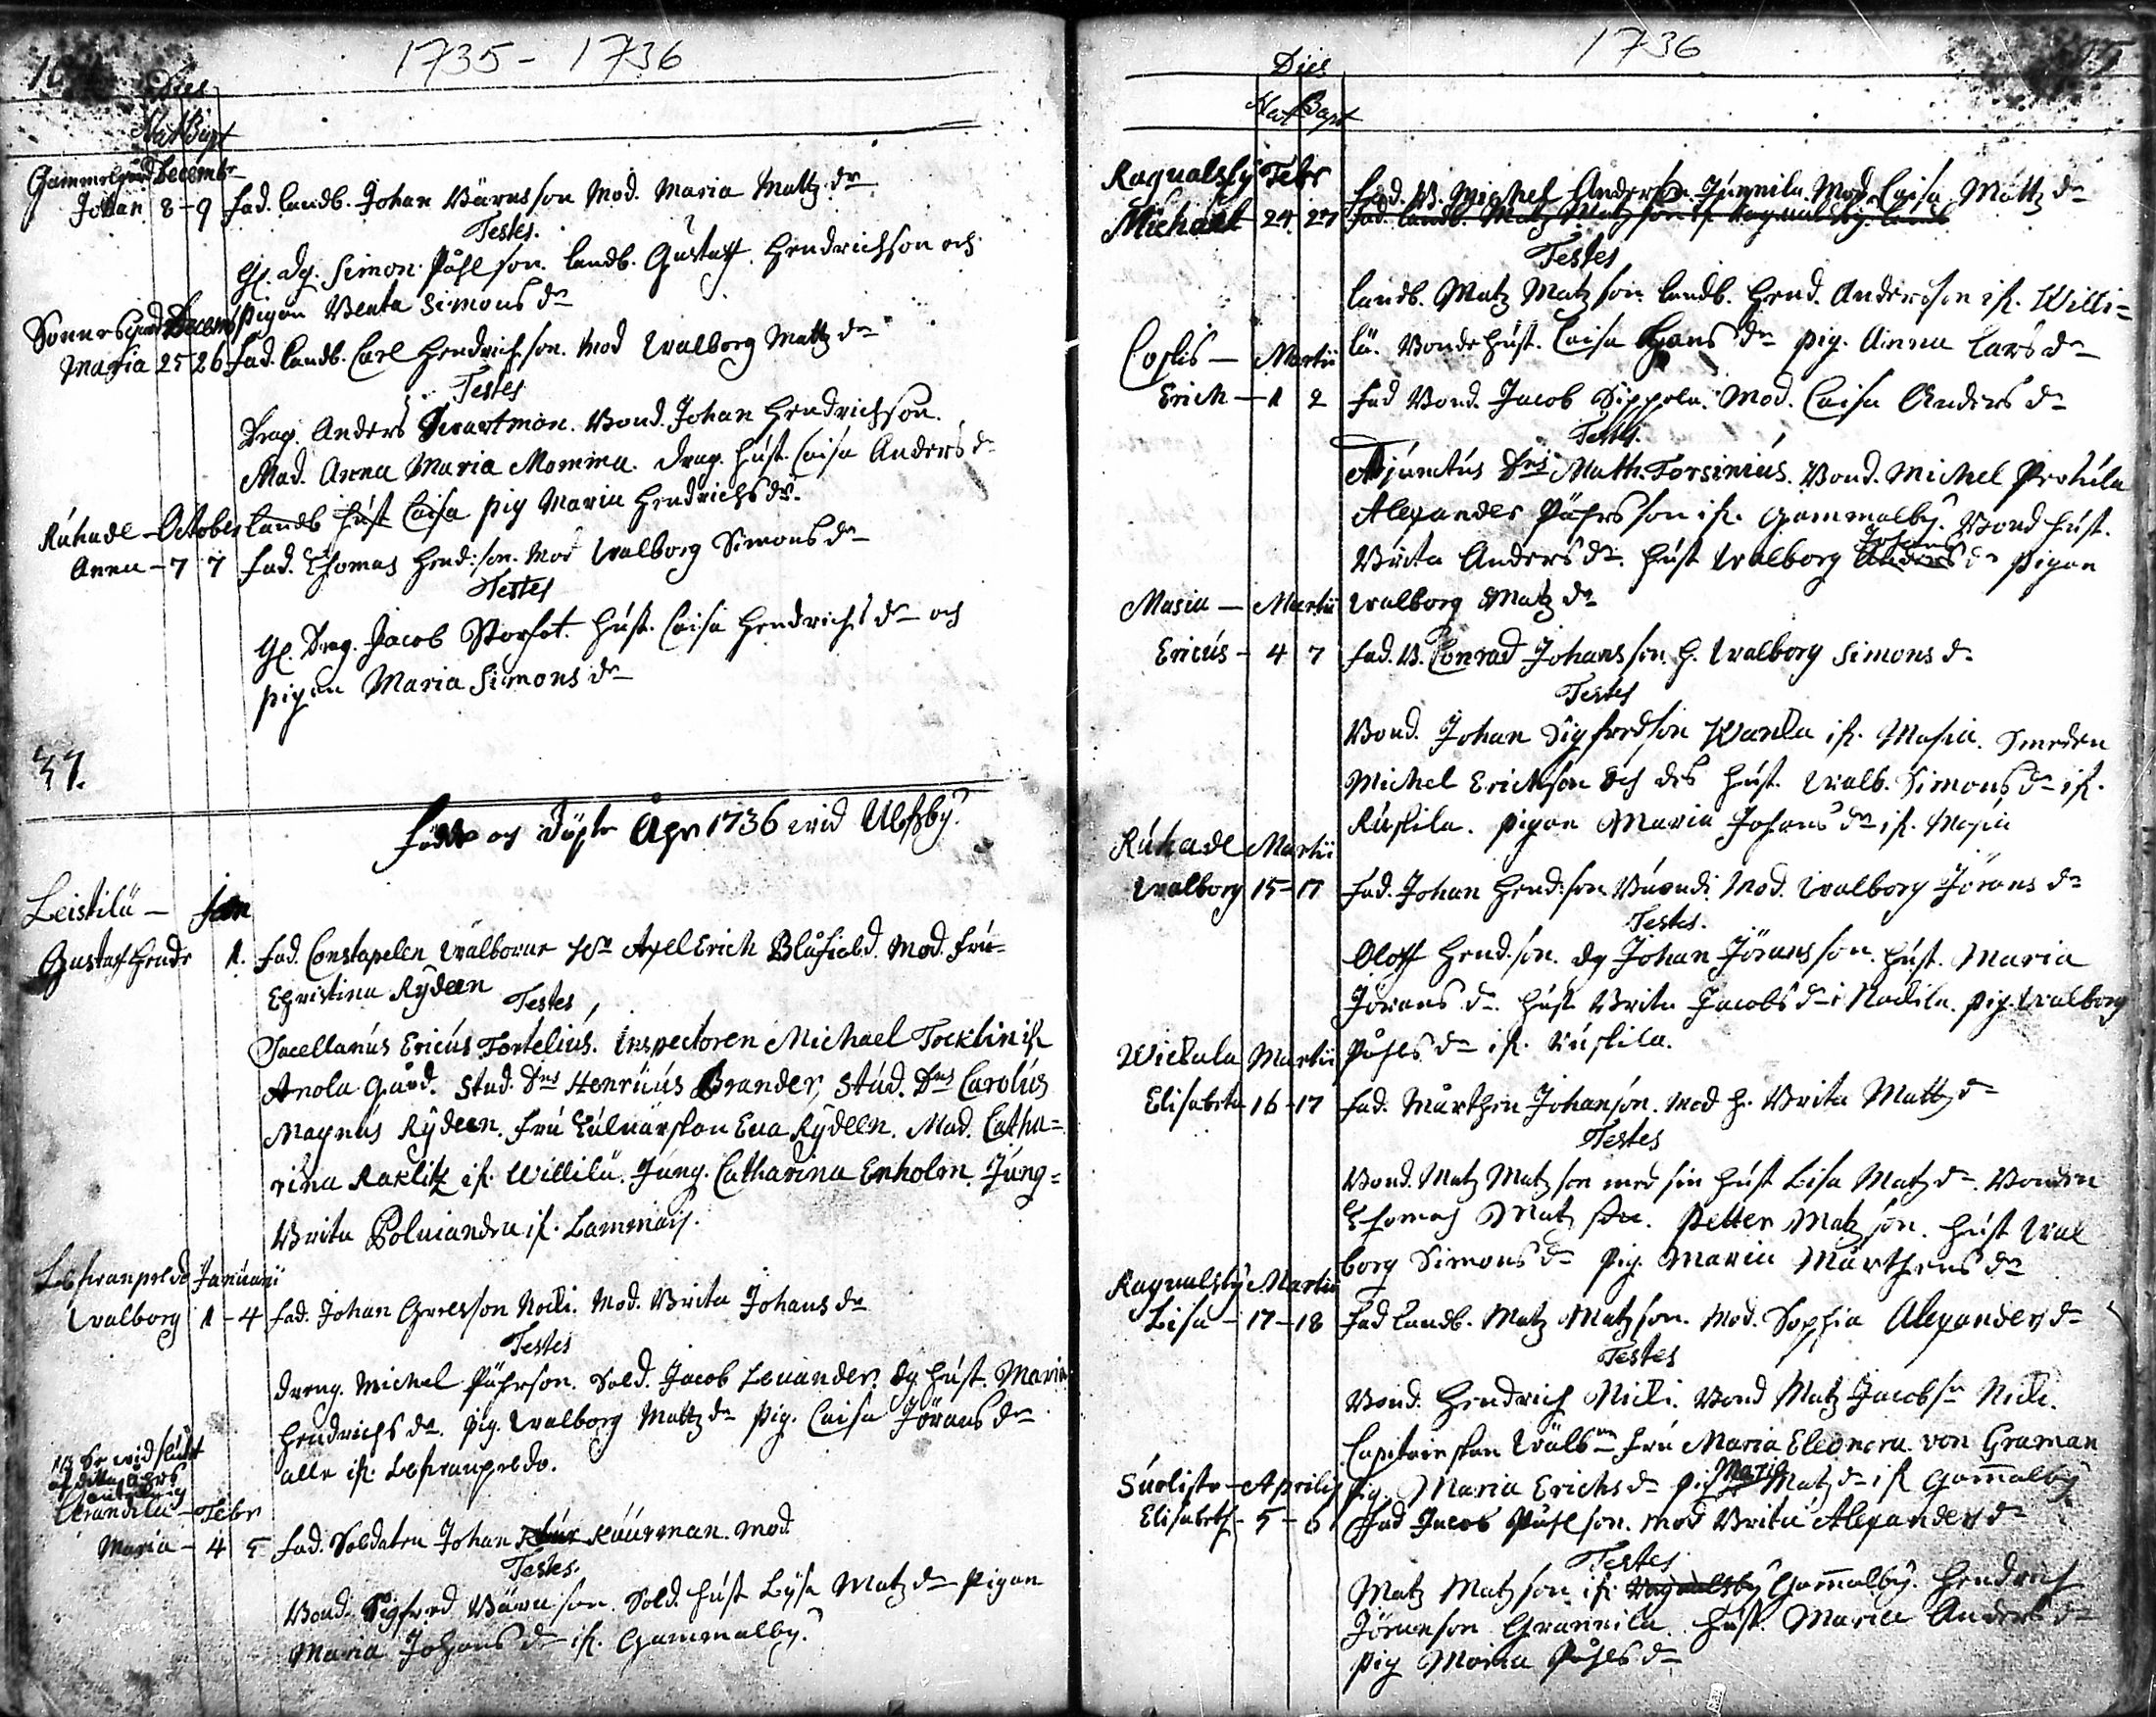 1735 - 1736
Dies
Nat Bapt
Gammelgård Decembr
Johan 8 - 9 Fad. landb. Johan Bärnsson Mod. Maria Mattz dr
Testes.
Gl. dg. Simon Påhlson. landb. Gustaff Hendrichson och
pigan Beata Simons dr
Decemb
Maria 25 26 Fad. landb. Carl Hendrichson. Mod Walborg Mattz dr
Testes
Drag. Anders Swartman. Bond. Johan Hendrichson.
Mad. Anna Maria Momma. drag. hust. Caisa Anders dr
landb hust Caisa pig Maria Hendrichs dr.
Ruhade - October
Anna - 7 7 Fad. Thomas Hend:son. Mod Walborg Simons dr
Testes
Gl. Drag. Jacob Storfot. hust. Caisa Hendrichs dr och
pigan Maria Simons dr
37.
Födde och döpte Åhr 1736 wid Ulfsby.
Leistilä - Jan
Gustaf Hendr 1. Fad. Constapelen Wälborne Hr Axell Erich Blåfield. Mod. Fru
Christina Rydeen
Testes
Sacellanus Ericus Fortelius. Inspectoren Michael Tocklin ifr.
Anola Gård. Stud. Dns Henricus Brander, Stud. Dns Carolus
Magnus Rydeen. Fru Eva Rydeen. Mad. Catha=
rina Raklitz ifr. Willilä. Jung. Catharina Enholm. Jung=
Brita Polviander ifr. Lammais.
Januarii
Walborg 1 - 4 Fad. Johan Grelsson Noki. Mod. Brita Johans dr
Testes
dreng. Michel Påhrson. Sold. Jacob Levander. dg hust. Maria
Hendrichs dr. Pig. Walborg Mattz dr Pig. Caisa Jörans dr
alle ifr.
NB Se wid slutet
af detta åhrs
antekning
Febr
Maria - 4 5 Fad. Soldaten Johan Kuurman. Mod
Testes.
Bond. Sigfred Bärnson. Sold. hust Lisa Matz dr pigan
Maria Johans dr ifr. Gammalby.
1736
Dies
Nat Bapt
Ragualsby Febr
Michael 24 27 Fad. B. Michel Anderson Junnila. Mod. Caisa Mattz dr
Fad. landb. Matz Matzson ifr. Ragualsby. landb
Testes
landb. Matz Matzson. landb. Hend. Andersson ifr. Willi=
lä. Bonde hust. Caisa Hans dr pig. Anna Lars dr
Martii
Erich - 1 2 Fad Bond. Jacob Sippola. Mod. Caisa Anders dr
Testes.
Adjunctus Dns Math. Forsinius. Bond. Michel Prohula
Alexander Påhrsson ifr. Gammalby. Bond hust.
Brita Anders dr. hust Walborg Anders Johans dr pigan
Walborg Matz dr
Masia - Martii
Ericus - 4 7 Fad. B. Conrad Johansson. H. Walborg Simons dr
Testes
Bond. Johan Sigfredson Wanka ifr. Masia. Smeden
Michel Erickson och des hust. Walb. Simons dr ifr.
Ruskila. pigan Maria Johans dr ifr. Masia
Ruhade Martii
Walborg 15 - 17 Fad. Johan Hend:son. Mod. Walborg Jörans dr
Testes.
Oloff Hend.son. dg Johan Jöransson. hust. Maria
Jörans dr. hust Brita Jacobs dr i Nokila. pig. Walborg
Påhls dr ifr. Ruskila.
Martii
Elisabeta 16 - 17 Fad. Mårthen Johanson. Mod h. Brita Mattz dr
Testes
Bond. Matz Matzson med sin hust Lisa Matz dr. Bonden
Thomas Matzson. Petter Matzson. hust Wal
borg Simons dr pig. Maria Mårthens dr
Ragualsby Martii
Lisa - 17 - 18 Fad landb. Matz Matzson. Mod. Sophia Alexanders dr
Testes
Bond. Hendrich Nicki. Bond Matz Jacobsn Nicki.
Capitainskan Wälbne Fru Maria Eleonora von Graman
pig. Maria Erichs dr pig Maria Matz dr ifr Gam̄alby
Suoliste - Aprilis
Elisabeth - 5 - 6 Fad Jacob Påhlson. Mod Brita Alexanders dr
Testes
Matz Matzson ifr. Ragualsby Gam̄alby. Hendrich
Jöranson Grannila. hust. Maria Anders dr
pig Maria Påhls dr